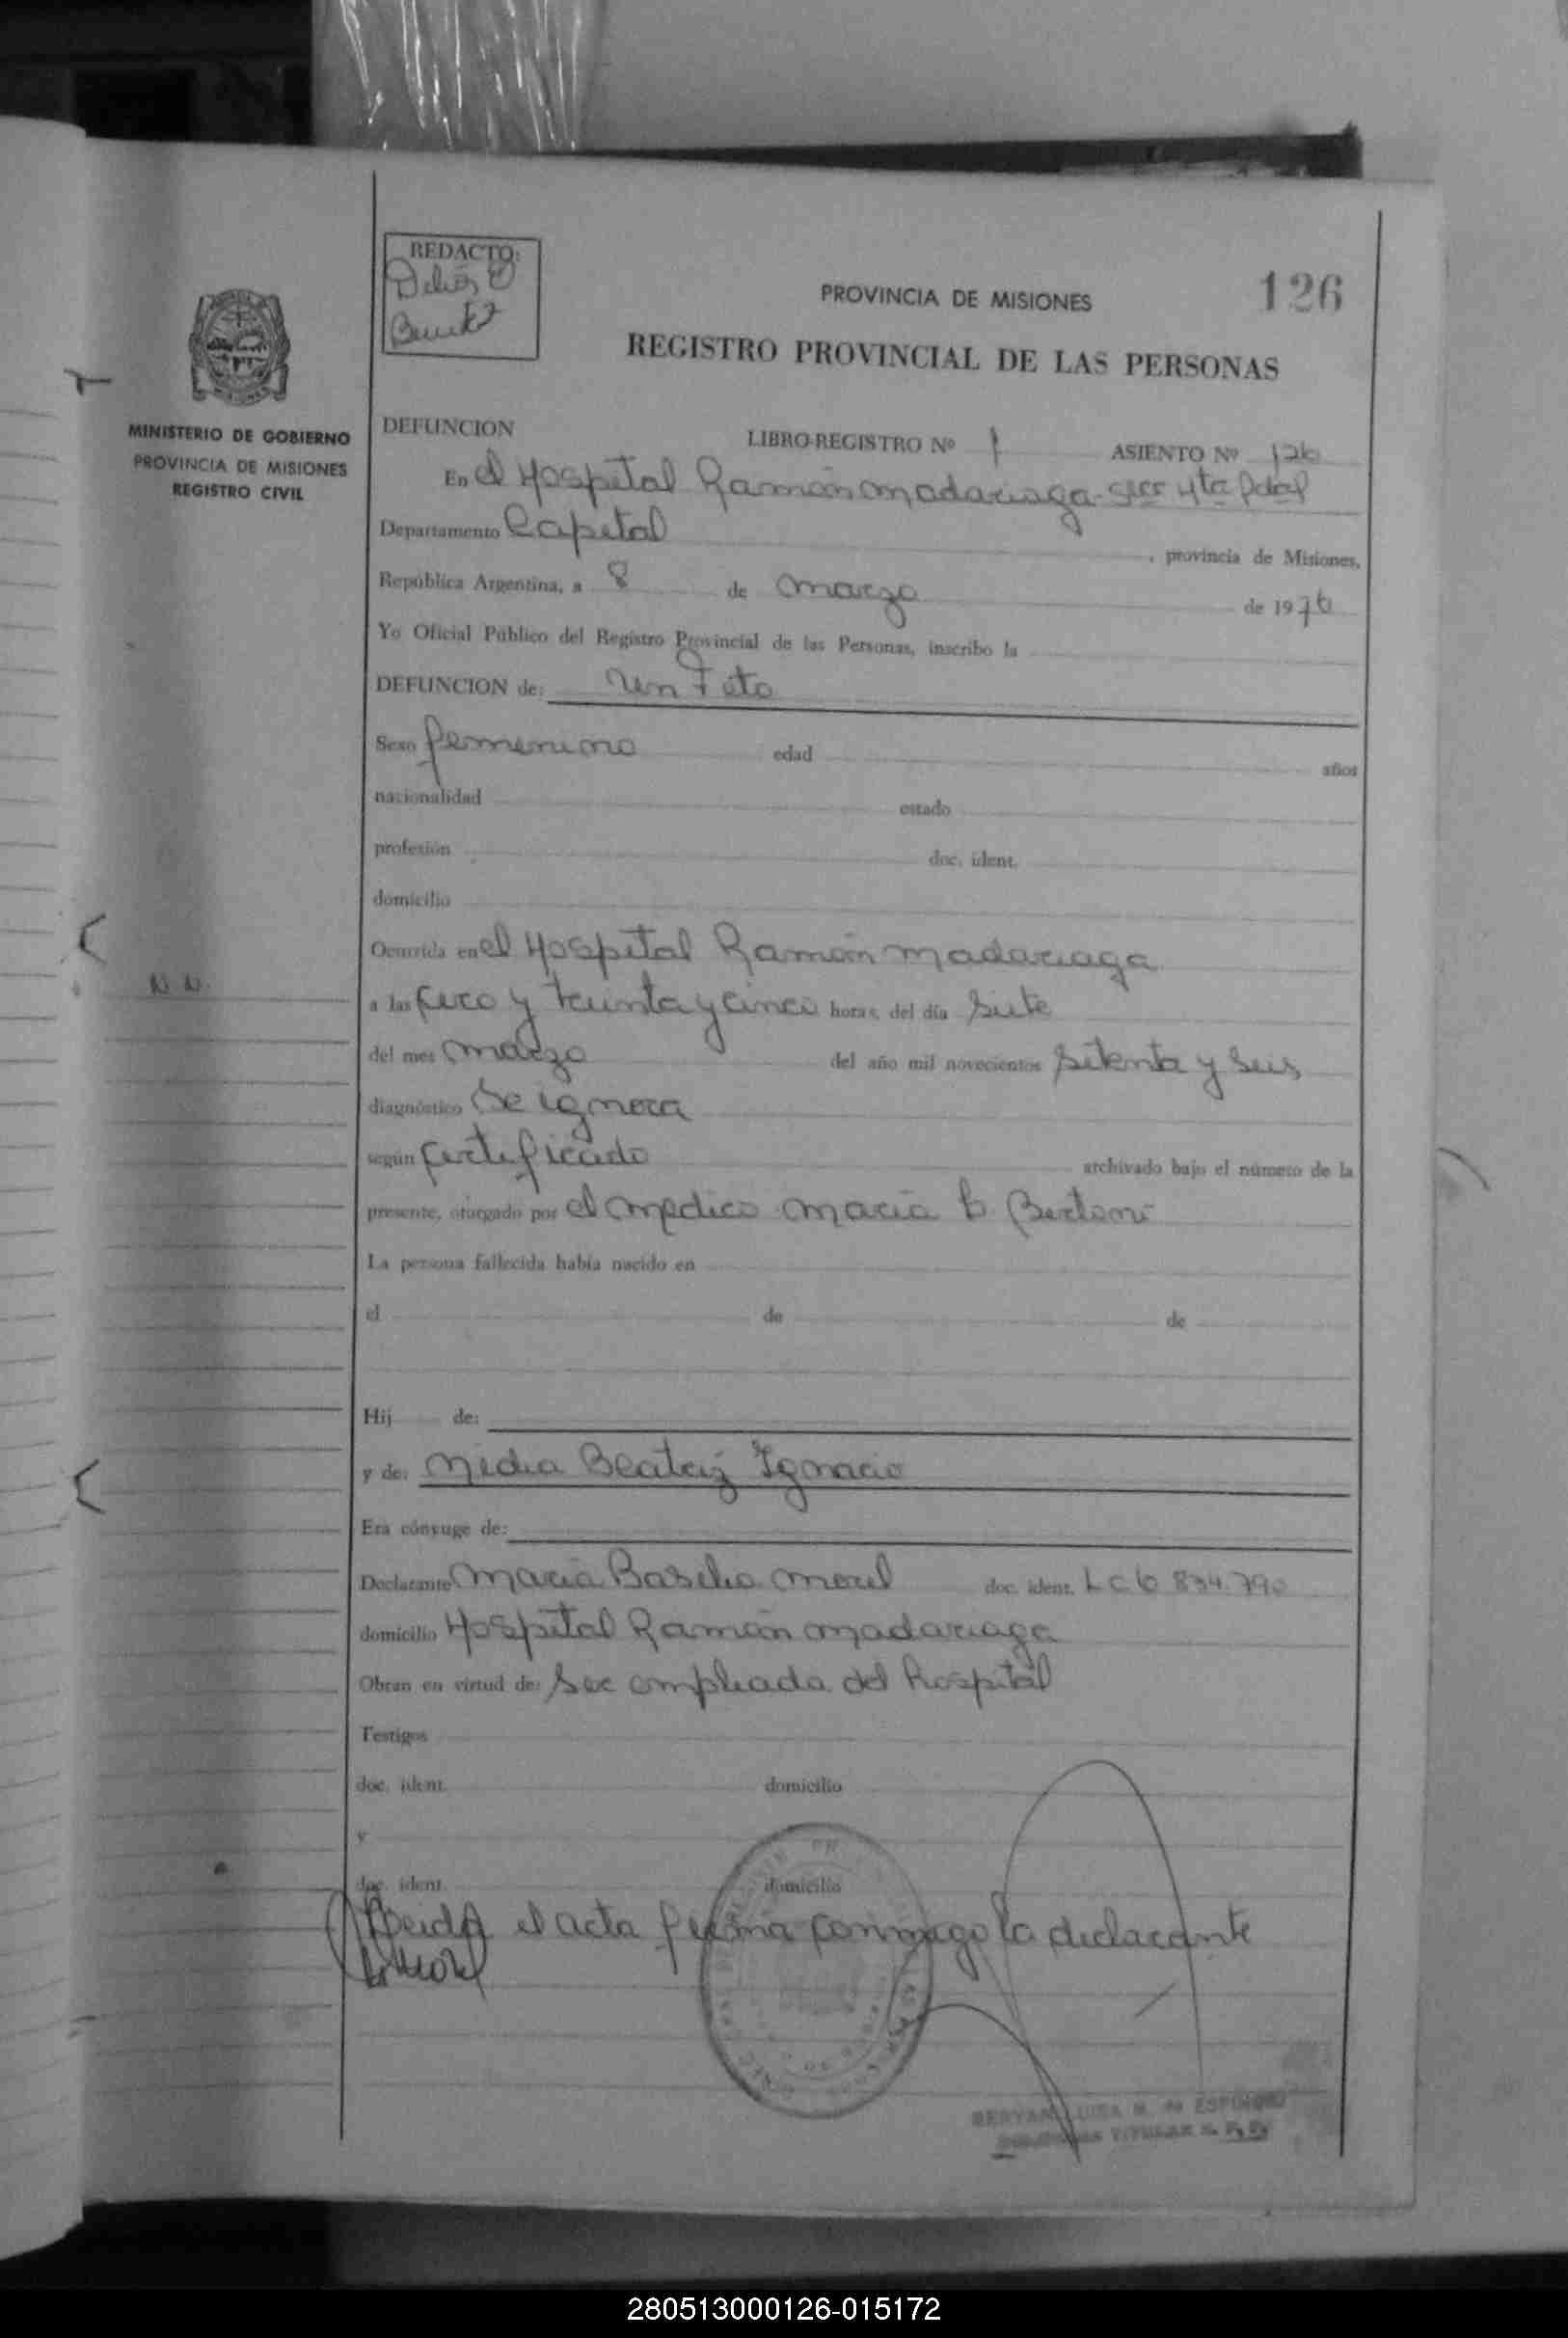 REDACTO:
126
PROVINCIA DE MISIONES
REGISTRO PROVINCIAL DE LAS PERSONAS
MINISTERIO DE GOBIERNO
PROVINCIA DE MISIONES
REGISTRO CIVIL
DEFUNCION LIBRO-REGISTRO Nº 1 ASIENTO Nº 126
En el Hospital Ramón Madariaga - Secc 4ta Pdas
Departamento Capital , provincia de Misiones,
República Argentina, a 8 de marzo de 1976
Yo Oficial Público del Registro Provincial de las Personas, inscribo la
DEFUNCION de: Un Feto
Sexo femenino edad años
nacionalidad estado
profesión doc. ident.
domicilio
Ocurrida en el Hospital Ramón Madariaga
N N.
a las cero y treinta y cinco horas, del día siete
del mes marzo del año mil novecientos setenta y seis
diagnóstico Se ignora
según certificado archivado bajo el número de la
presente, otorgado por el medico Maria b Bertoni
La persona fallecida había nacido en
el de de
Hij de:
y de: Nidia Beatriz Ignacio
Era cónyuge de:
Declarante Maria Basilia Morel doc. ident. L C 6 834.790
domicilio Hospital Ramón Madariaga
Obran en virtud de: Ser empleada del hospital
Testigos
doc. ident. domicilio
y
doc. ident. domicilio
Leida el acta firma conmigo la declarante
LUISA M. de ESPINOSA
TITULAR
280513000126-015172